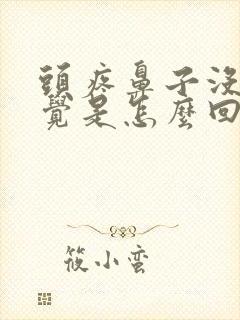 頭疼鼻子沒
覺是怎麼回
筱小蛮